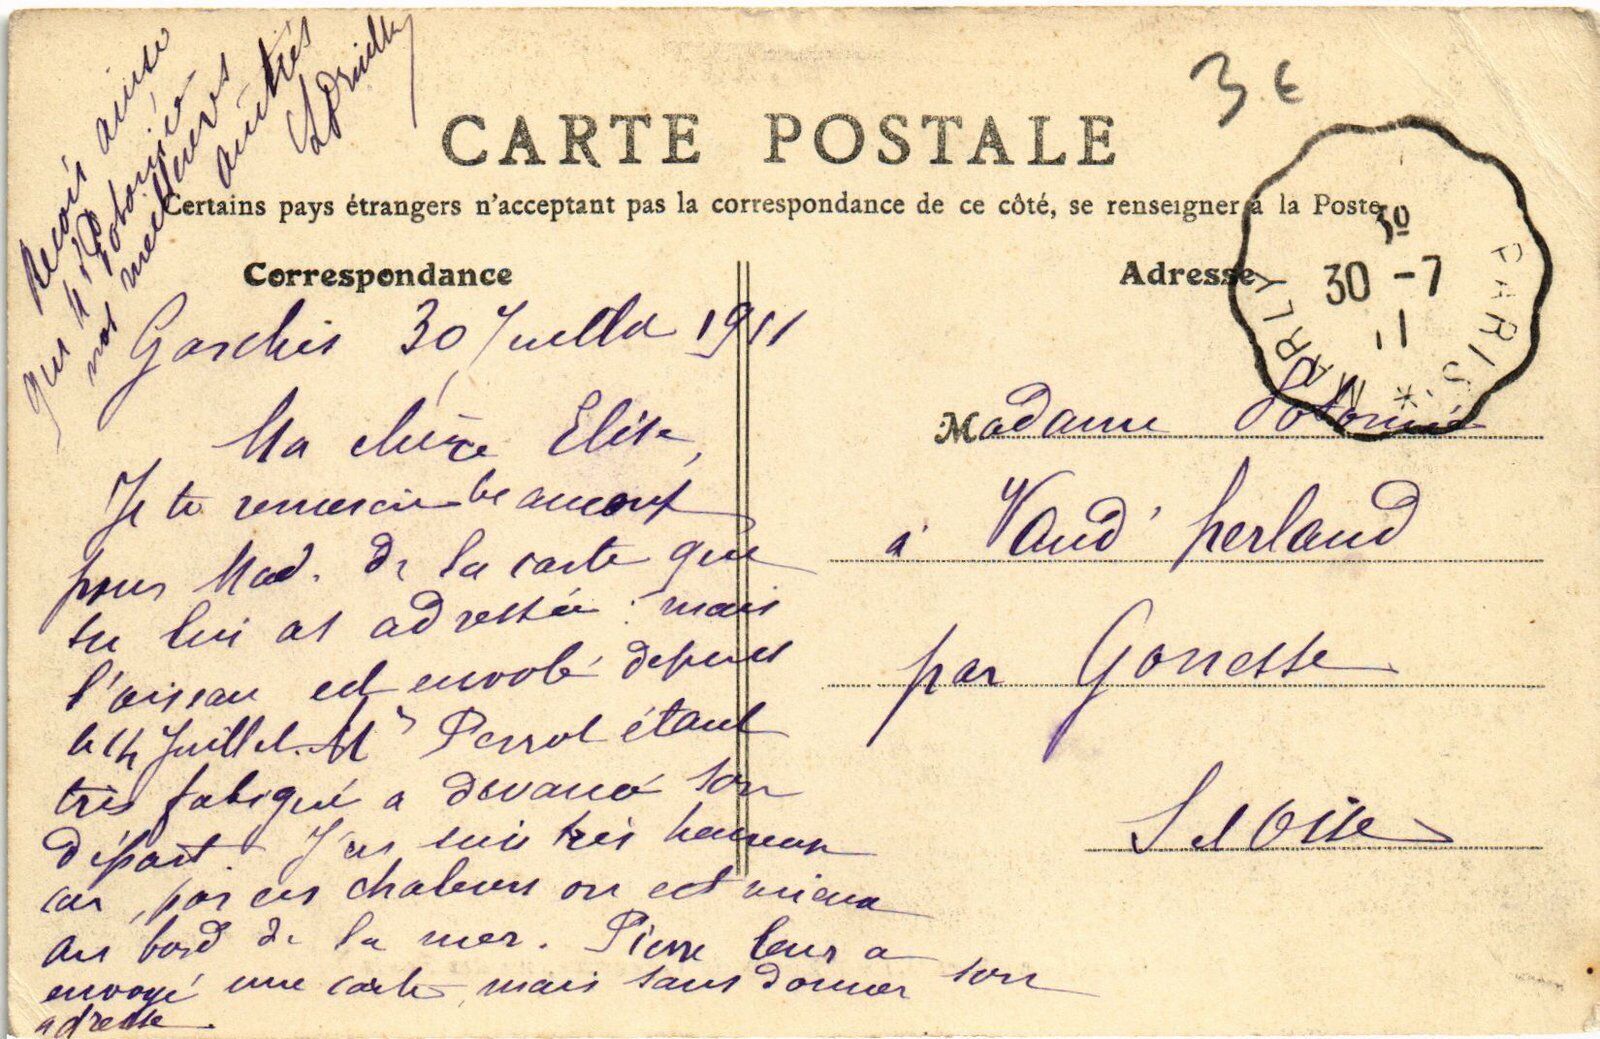 3 €
CARTE POSTALE
Certains pays étrangers n'acceptant pas la correspondance de ce côté, se renseigner à la Poste
Correspondance
Adresse
MARLY * PARIS
30 -7
11
Garches 30 Juillet 1911
Ma chère Elise,
Je te remercie beaucoup
pour Mad. de la carte que
tu lui as adressée : mais
l'oiseau est envolé depuis
le 14 Juillet. Mr Perrot étant
très fatigué a devancé son
départ. J'en suis très heureux
car, par ces chaleurs on est mieux
au bord de la mer. Pierre leur a
envoyé une carte, mais sans donner son
adresse.
Reçois ainsi
que Mr Potonié
nos meilleures
amitiés
Madame Potonié
à Vaud'herland
par Gonesse
S et Oise